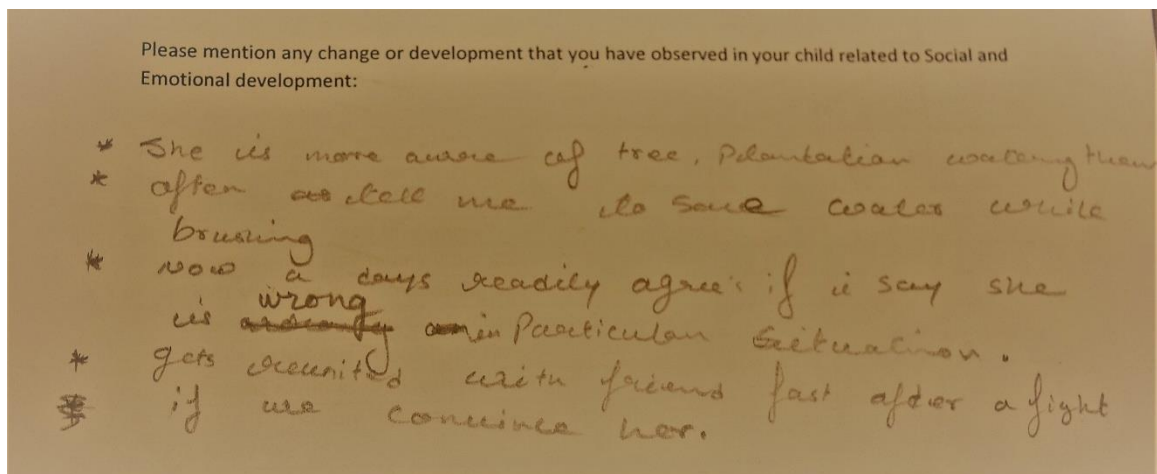 Please mention any change or development that you have observed in your child related to Social and
Emotional development:
* She is more aware of tree, Plantation watering them
* often tell me to save water while
brushing
* Now a days readily agree's if i say she
is wrong in Particular Situation.
* gets reunited with friend fast after a fight
if we convince her.